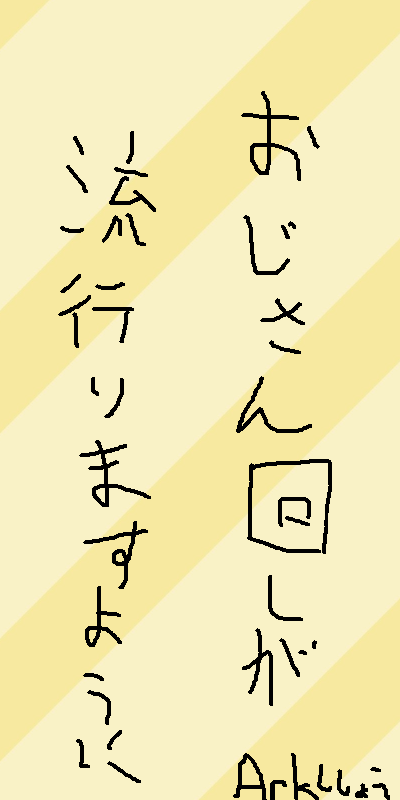 おじさん回しが
流行りますように
Arkししょう